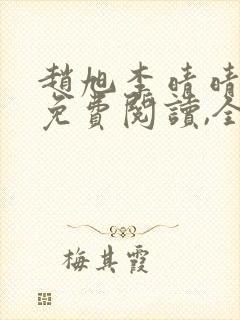 趙旭李晴晴
免費閱讀,全
梅其霞